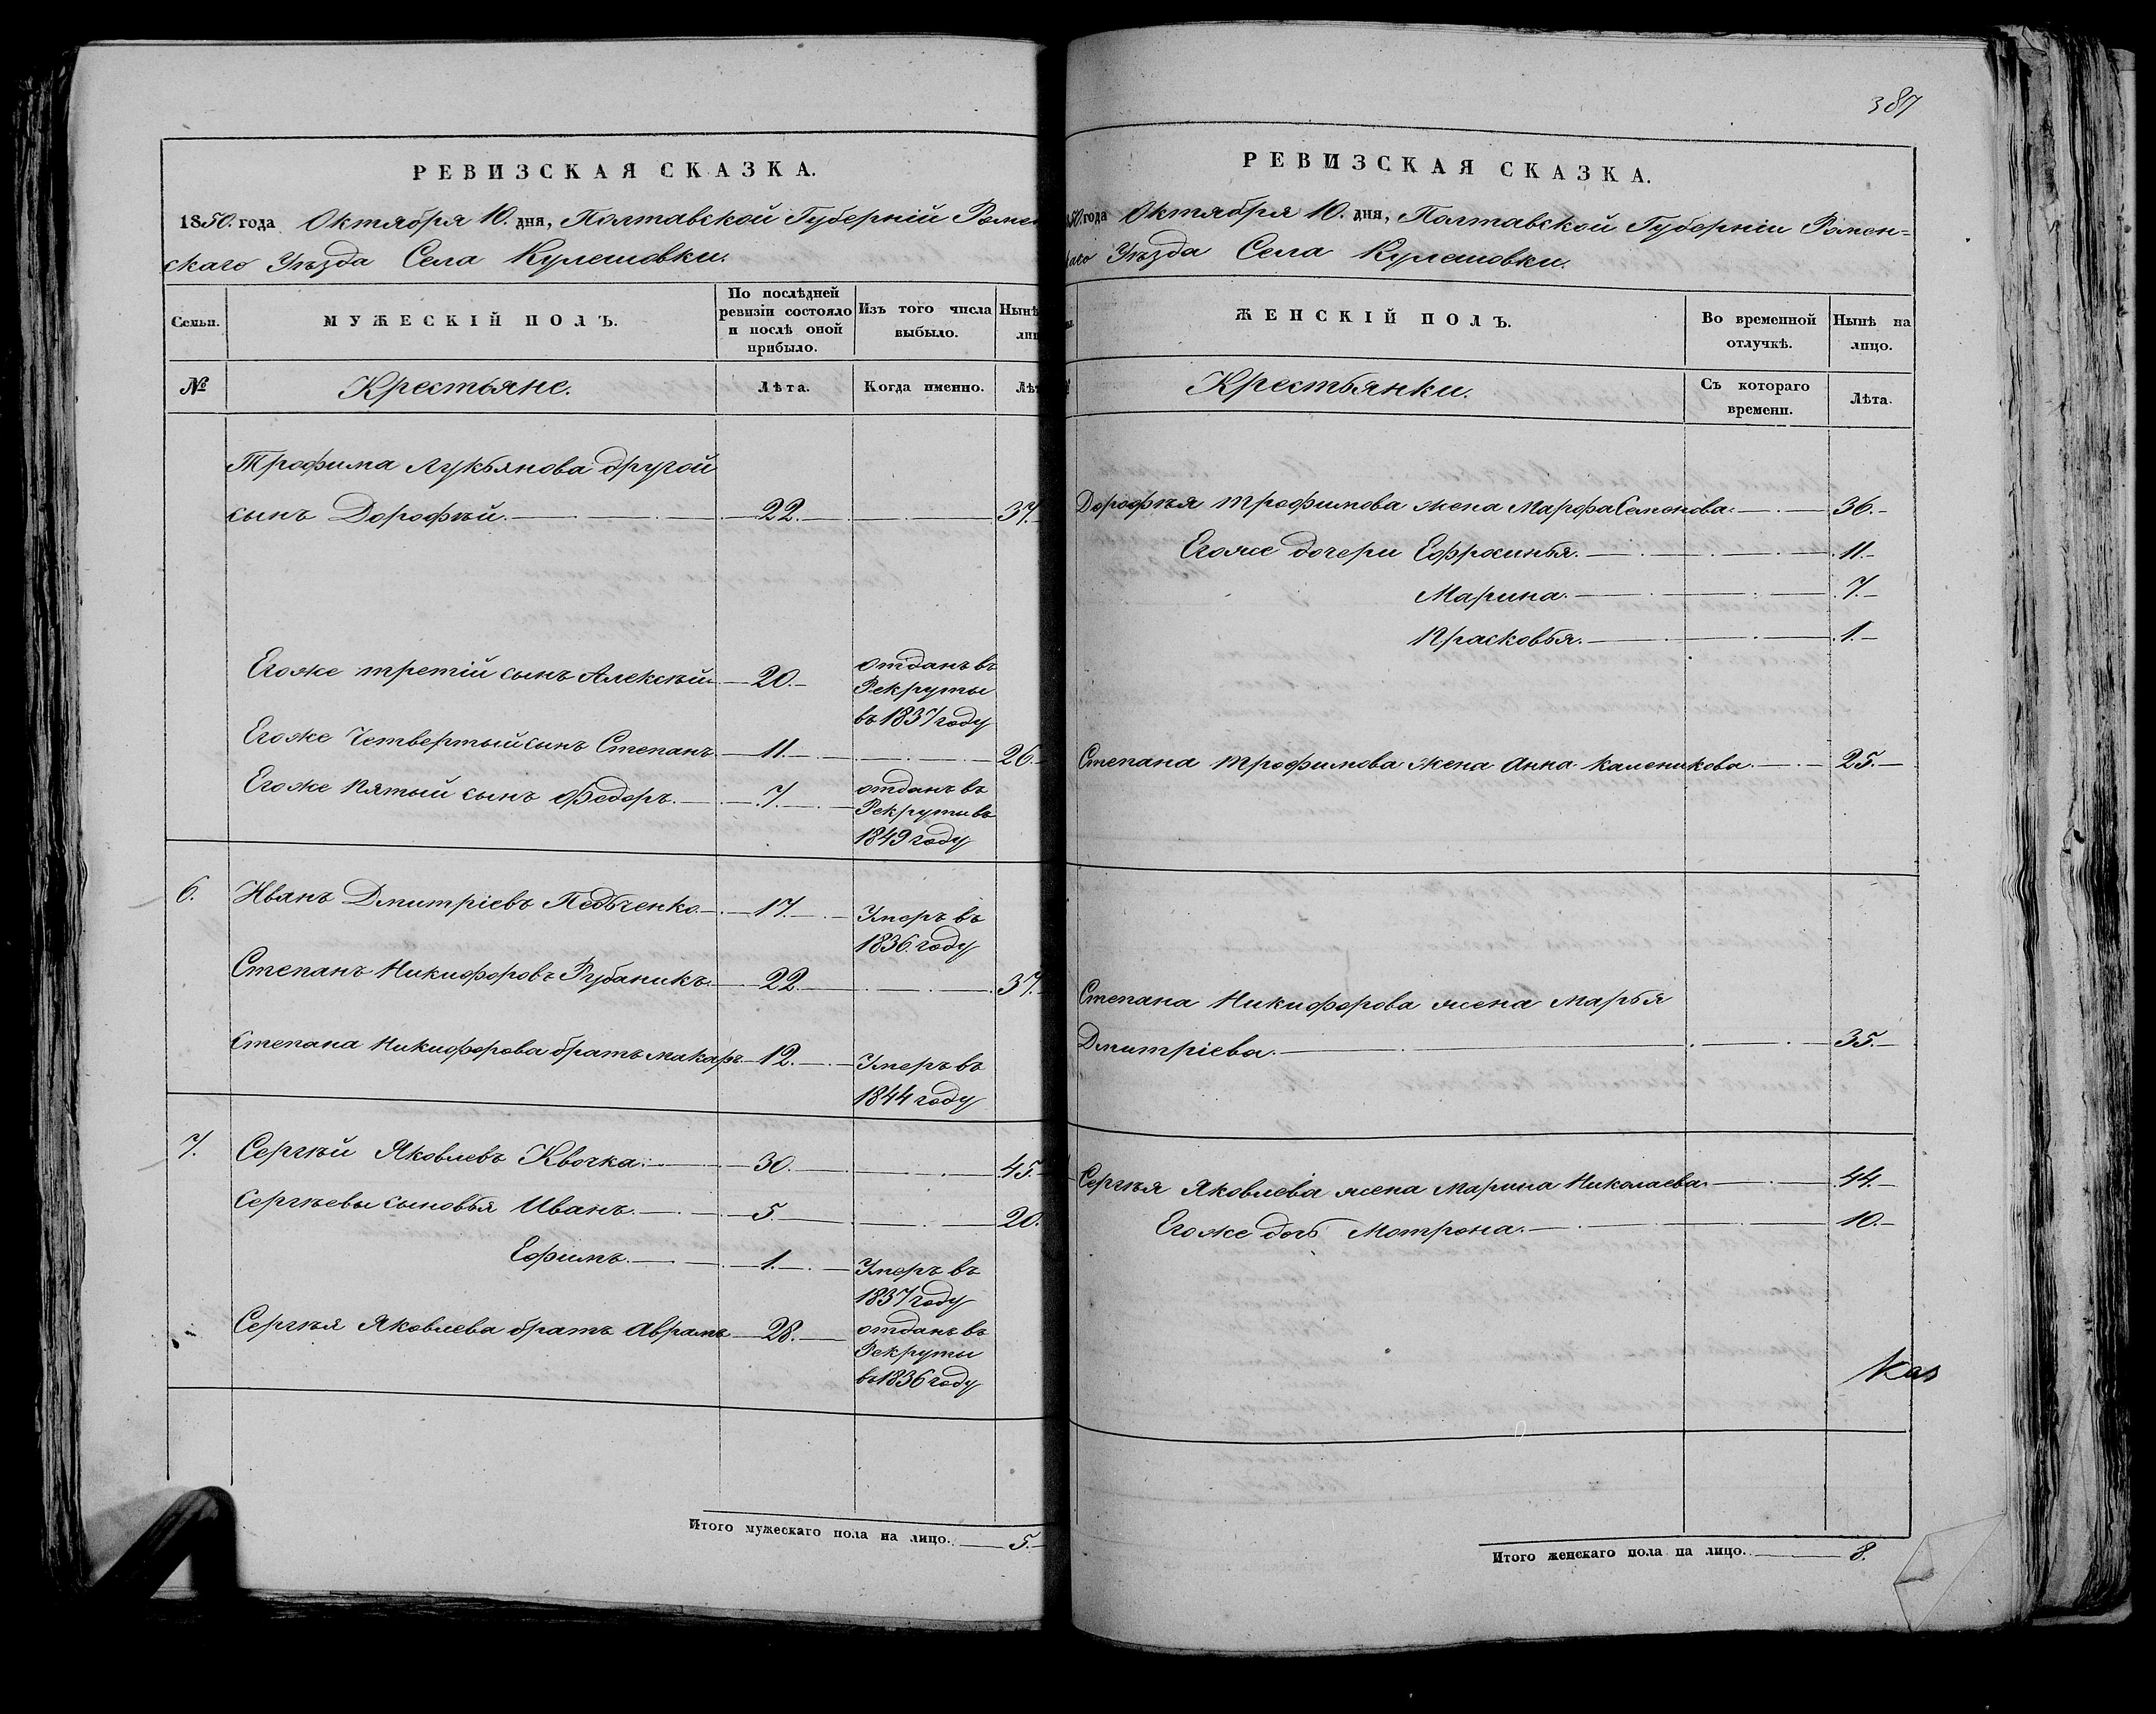 РЕВИЗСКАЯ СКАЗКА.
1850. года Октября 10. дня, Полтавской Губерніи Ромен
скаго Уѣзда Села Кулешовки.
Семьи.
МУЖЕСКІЙ ПОЛЪ.
По послѣдней
ревизіи состояло
и послѣ оной
прибыло.
Изъ того числа
выбыло.
Нынѣ
лиц
№
Крестьяне.
Лѣта.
Когда именно.
Лѣт
Трофима Лукьянова другой
сынъ Дорофѣй. 22. 37.
Егоже третій сынъ Алексѣй 20. отданъ въ
Рекруты
въ 1837 году
Егоже Четвертый сынъ Степанъ 11. 26.
Егоже Пятый сынъ Федоръ. 7. отданъ въ
Рекруты въ
1849 году
6. Иванъ Дмитріевъ Педьченко. 17. Умеръ въ
1836. году
Степанъ Никифоровъ Рубаникъ. 22. 37.
Степана Никифорова братъ Макаръ 12. Умеръ въ
1844 году
7. Сергѣй Яковлевъ Квочка. 30. 45.
Сергѣевы сыновья Иванъ. 5. 20.
Ефимъ. 1. Умеръ въ
1837 году
Сергѣя Яковлева братъ Аврамъ 28. отданъ въ
Рекруты
въ 1836 году
Итого мужескаго пола на лицо. 5.
387
РЕВИЗСКАЯ СКАЗКА.
50. года Октября 10. дня, Полтавской Губерніи Ромен=
каго Уѣзда Села Кулешовки.
ЖЕНСКІЙ ПОЛЪ.
Во временной
отлучкѣ.
Нынѣ на
лицо.
Крестьянки.
Съ котораго
времени.
Лѣта.
Дорофѣя Трофимова жена Марфа Семенова. 36.
Егоже дочери Ефросинья. 11.
Марина. 7.
Прасковья. 1.
Степана Трофимова жена Анна Каленикова. 25.
Степана Никифорова жена Марья
Дмитріева. 35.
Сергѣя Яковлева жена Марина Николаева. 44.
Егоже дочь Мотрона. 10.
Итого женскаго пола на лицо. 8.